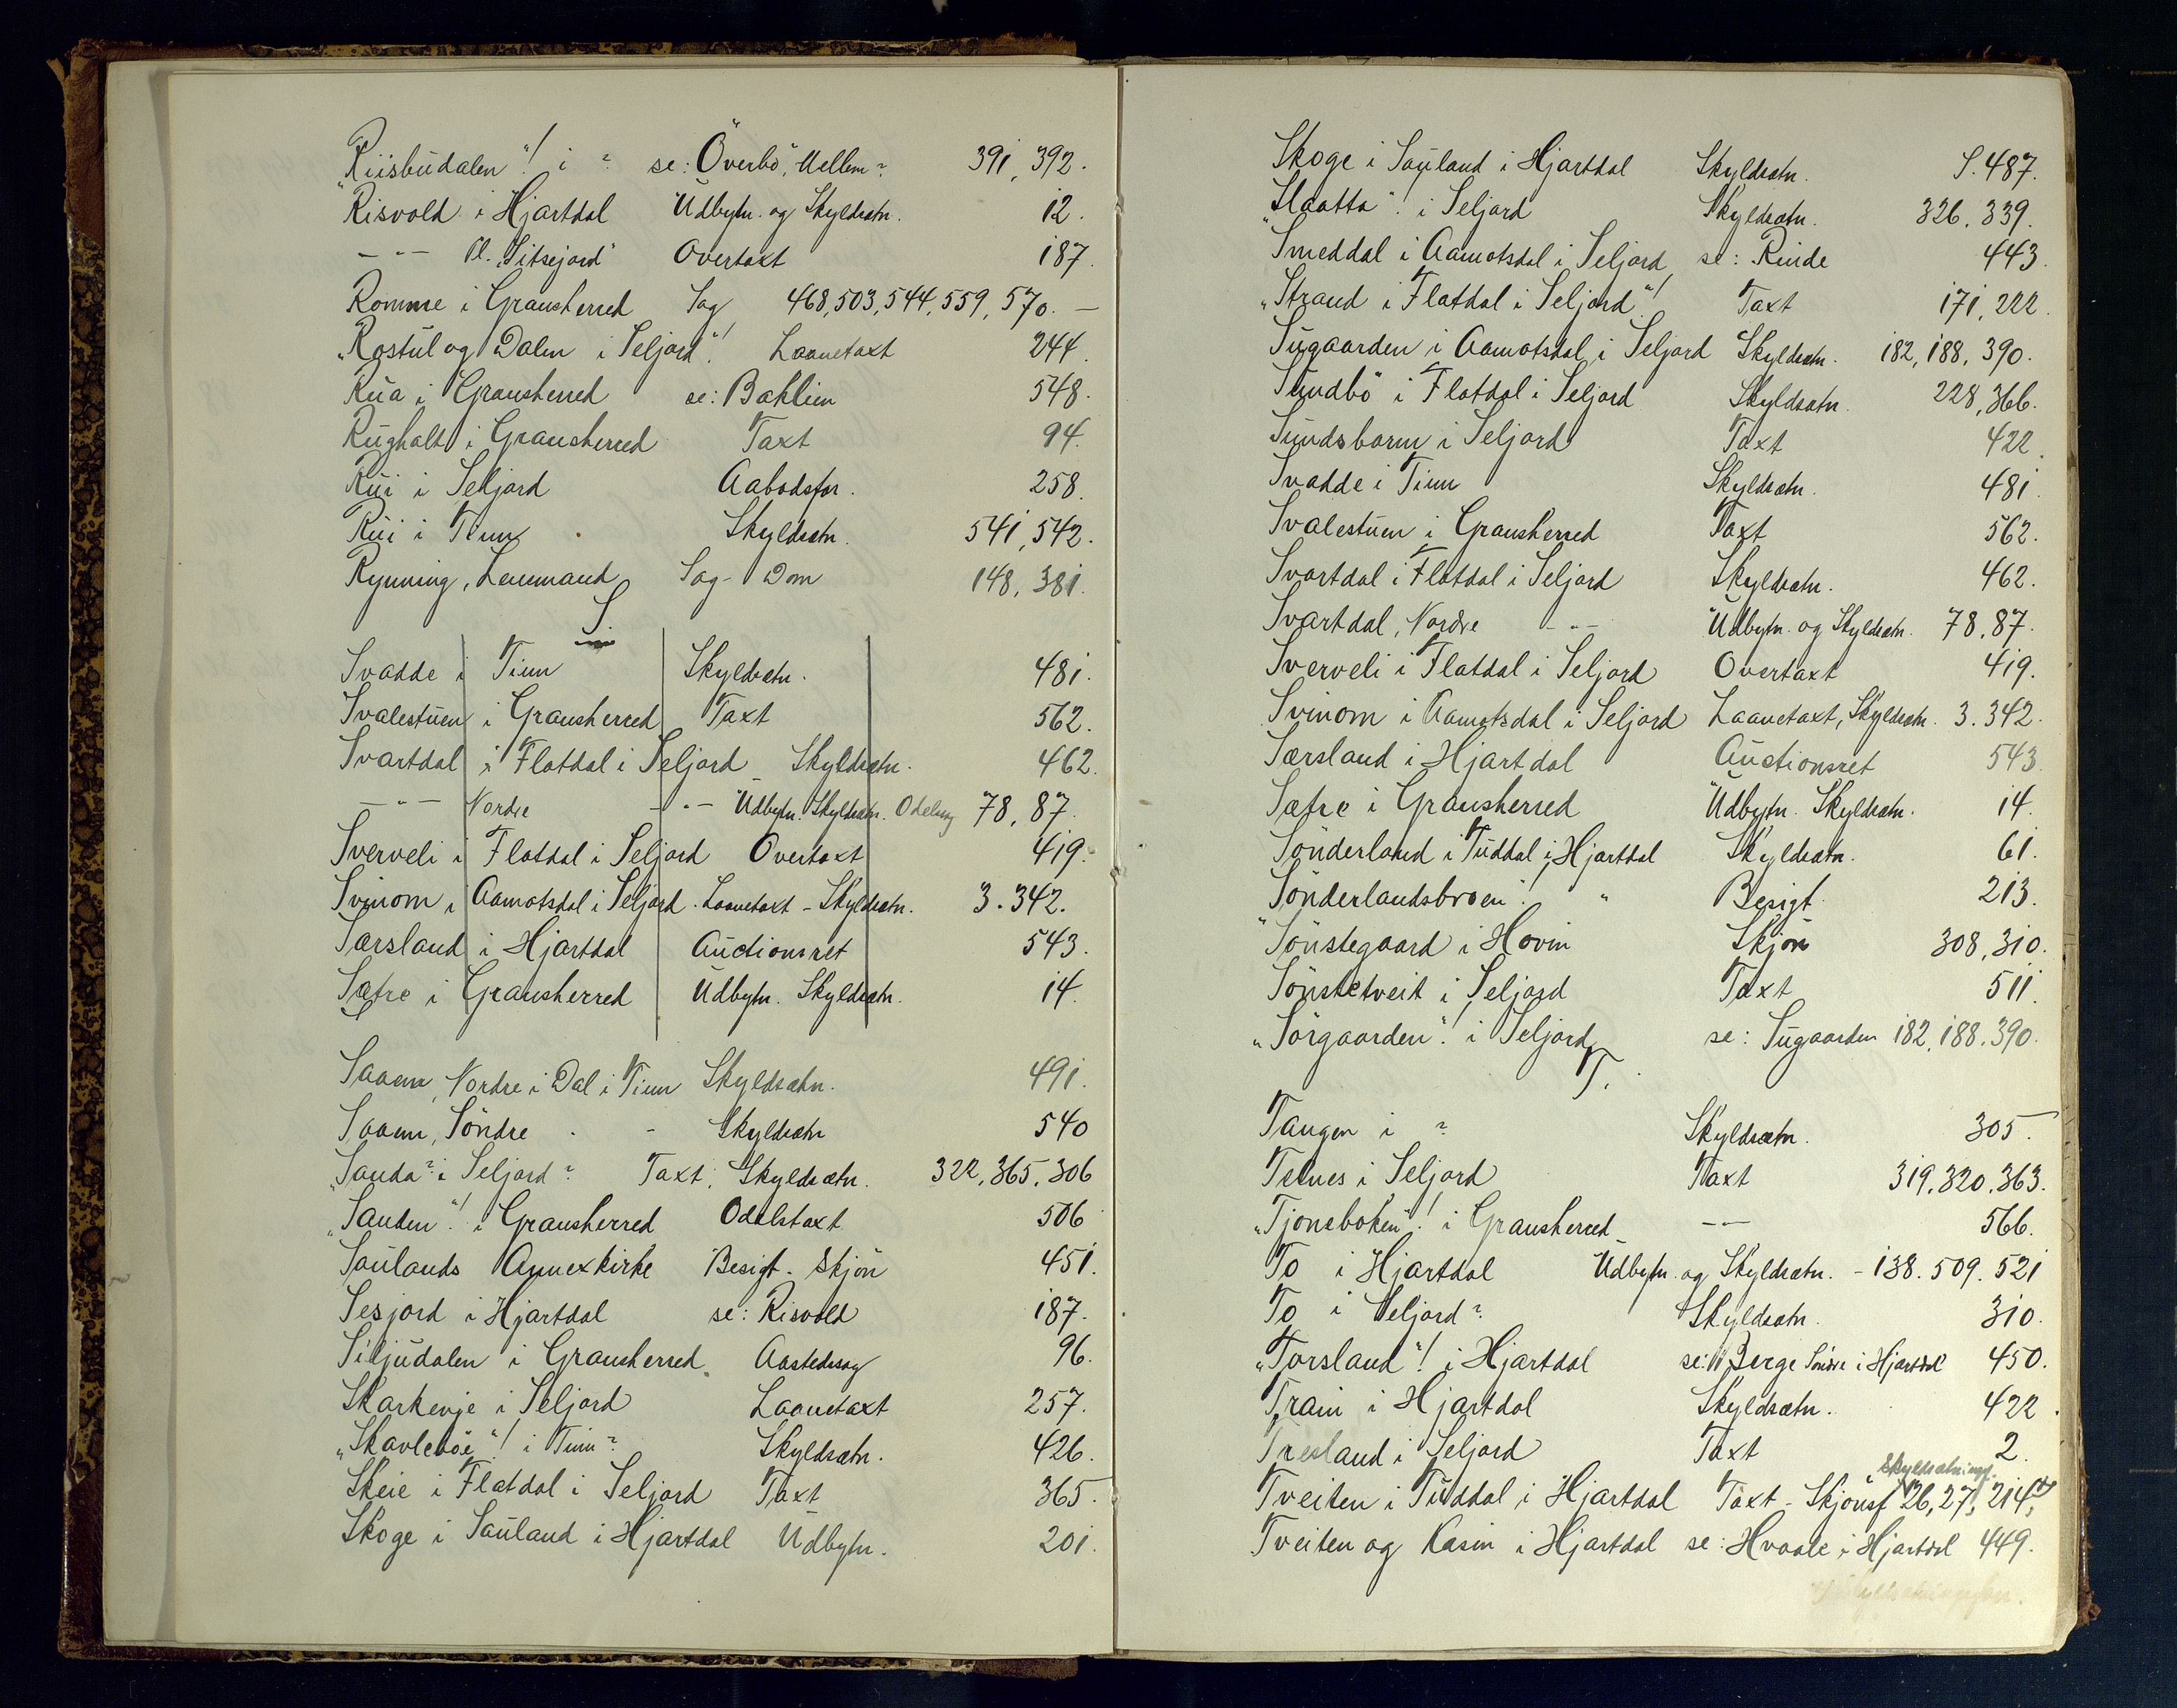 „Riisbudalen"! i ? se: "Överbö", Mellem? 391, 392.
Risvold i Hjartdal Udbytn. og Skyldsætn. 12.
— " — Pl. „Sitsejord" Overtaxt 187.
Romme i Gransherred Sag 468, 503, 544, 559, 570. —
„Rostul og Dalen i Seljord"! Laanetaxt 244.
Rua i Gransherred se: Bahlien 548.
Rughalt i Gransherred Taxt 94.
Rui i Seljord Aabodsfor. 258.
Rui i Tinn Skyldsætn. 541, 542.
Rynning, Lensmand Sag - Dom 148, 381.
S.
Svadde i Tinn Skyldsætn. 481.
Svalestuen i Gransherred Taxt 562.
Svartdal i Flatdal i Seljord Skyldsætn. 462.
— " — Nordre — " — Udbytn. Skyldsætn. Odelssag 78, 87.
Sverveli i Flatdal i Seljord Overtaxt 419.
Svinom i Aamotsdal i Seljord. Laanetaxt - Skyldsætn. 3. 342.
Særsland i Hjartdal Auctionsret 543.
Sætre i Gransherred Udbytn. Skyldsætn. 14.
Saaem, Nordre i Dal i Tinn Skyldsætn. 491.
Saaem, Söndre - - Skyldsætn 540
„Sanda? i Seljord? Taxt, Skyldsætn. 322, 365, 306
„Sanden"! i Gransherred Odelstaxt 506
Saulands Annexkirke Besigt. Skjön 451.
Sesjord i Hjartdal se: Risvold 187.
Siljudalen i Gransherred Aastedssag 96.
Skarkenje i Seljord Laanetaxt 257.
„Skavleböe"! i Tinn? Skyldsætn. 426.
Skeie i Flatdal i Seljord Taxt 365.
Skoge i Sauland i Hjartdal Udbytn. 201.
Skoge i Sauland i Hjartdal Skyldsætn. S. 487.
„Slaatta"! i Seljord Skyldsætn. 326. 339.
Smeddal i Aamotsdal i Seljord, se: Rinde 443.
„Strand i Flatdal i Seljord"! Taxt 171, 222.
Sugaarden i Aamotsdal i Seljord Skyldsætn. 182, 188, 390.
Sundbö i Flatdal i Seljord Skyldsætn. 228, 366.
Sundsbarm i Seljord Taxt 422.
Svadde i Tinn Skyldsætn. 481.
Svalestuen i Gransherred Taxt 562.
Svartdal i Flatdal i Seljord Skyldsætn. 462.
Svartdal, Nordre - " - Udbytn. og Skyldsætn. 78, 87.
Sverveli i Flatdal i Seljord Overtaxt 419.
Svinom i Aamotsdal i Seljord Laanetaxt, Skyldsætn. 3. 342.
Særsland i Hjartdal Auctionsret 543.
Sætre i Gransherred Udbytn. Skyldsætn. 14.
Sönderland i Tuddal i Hjartdal Skyldsætn. 61.
Sönderlandsbroen! " Besigt. 213.
"Sönstegaard i Hovin Skjön 308, 310.
Sönstetveit i Seljord Taxt 511.
„Sörgaarden"! i Seljord se: Sugaarden 182, 188, 390.
T.
Tangen i ? Skyldsætn. 305.
Telnes i Seljord Taxt 319, 320, 363.
„Tjonsboken"! i Gransherred — " — 566.
To i Hjartdal Udbytn. og Skyldsætn. - 138. 509. 521
To i Seljord? Skyldsætn. 310.
„Torsland"! i Hjartdal se: Berge Söndre i Hjartdal 450.
Train i Hjartdal Skyldsætn. 422.
Træland i Seljord Taxt 2.
Skyldsætningsf.
Tveiten i Tuddal i Hjartdal Taxt - Skjönsf 26, 27, 214,
Tveiten og Kasin i Hjartdal se: Hvaale i Hjartdal 449.